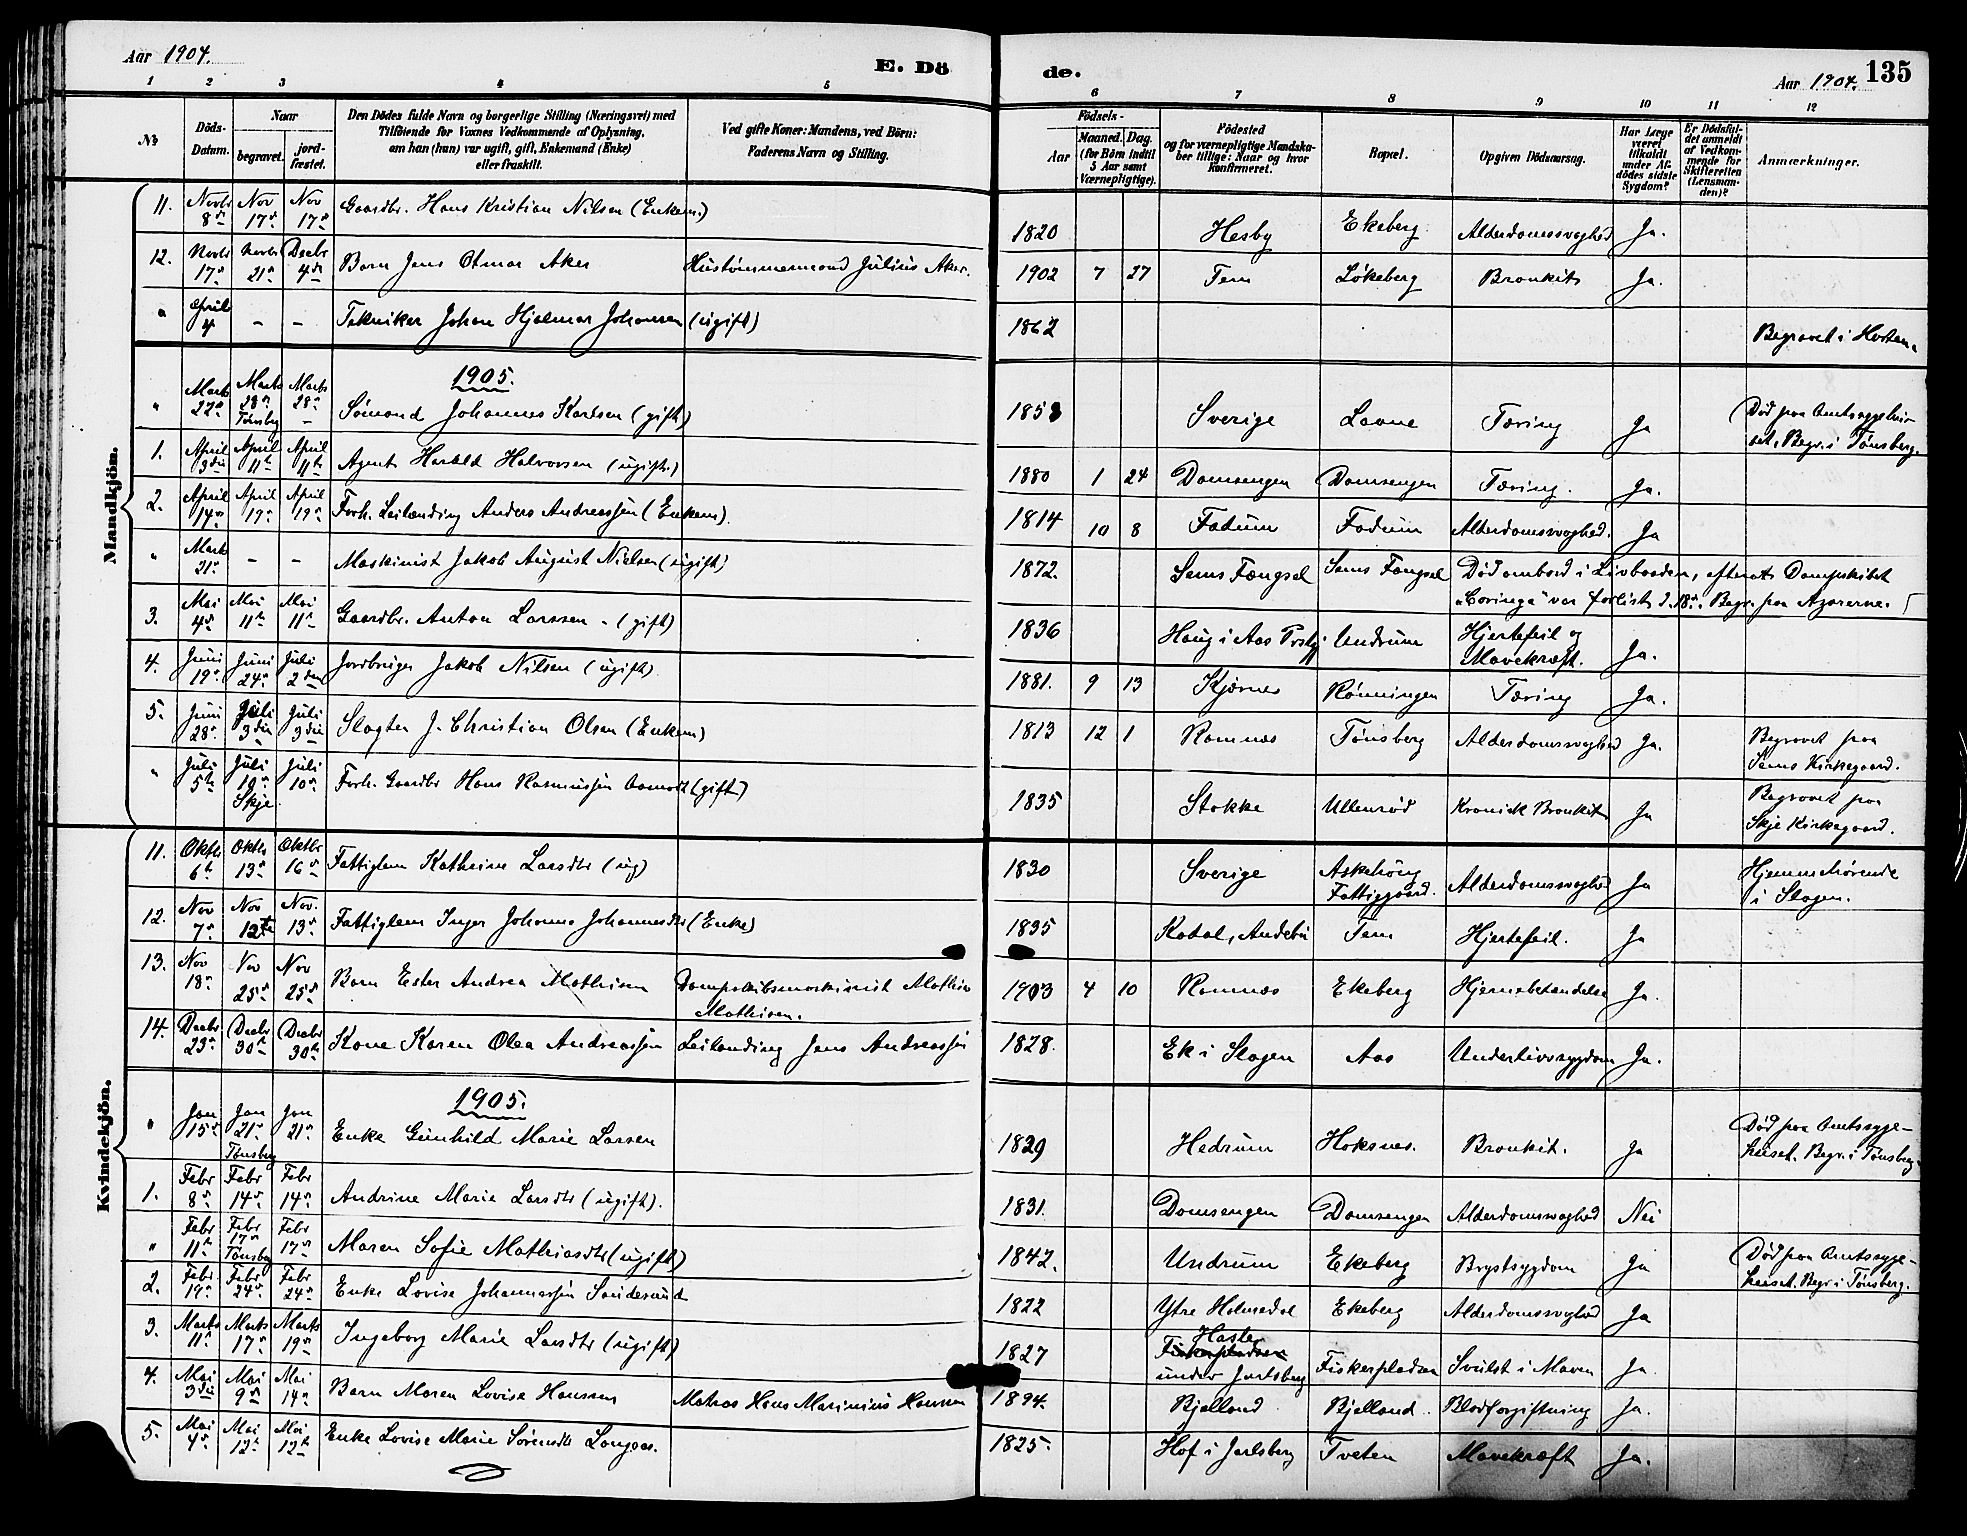 Aar 1904.
E. Dö
de.
Aar 1904.
135
1 2 3 4 5 6 7 8 9 10 11 12
No
Döds-Datum.
Naar
begravet.
jord-fæstet.
Den Dödes fulde Navn og borgerlige Stilling (Næringsvei) med
Tilföiende for Voxnes Vedkommende af Oplysning,
om han (hun) var ugift, gift, Enkemand (Enke)
eller fraskilt.
Ved gifte Koner: Mandens, ved Börn:
Faderens Navn og Stilling.
Födsels-
Aar
Maaned. Dag.
(for Börn indtil
5 Aar samt
Værnepligtige).
Födested
og for værnepligtige Mandska-
ber tillige: Naar og hvor
konfirmeret.
Bopæl.
Opgiven Dödsaarsag.
Har Læge
været
tilkaldt
under Af-
dödes sidste
Sygdom?
Er Dödsfal-
det anmeldt
af Vedkom-
mende for
Skifteretten
(Lensman-
den)?
Anmærkninger.
Mandkjön.
11. Novbr 8de Nov 17de Nov 17de Gaardbr. Hans Kristian Nilsen (Enkem.) 1820 Hesby Ekeberg Alderdomssvaghed Ja.
12. Novbr 17de Novbr 21de Decbr 4de Barn Jens Otmar Aker Hustømmermand Julius Aker. 1902 7 27 Tem Løkeberg Bronkit Ja.
" April 4 – – Tekniker Johan Hjalmar Johansen (ugift) 1862 Begravet i Horten.
1905.
" Marts 22de Marts 28de Tønsberg Marts 28de – Sømand Johannes Karlsen (gift) 1858 Sverige Lavne Tæring Ja Død paa Amtssygehu-
set. Begr. i Tønsberg.
1. April 3die April 11te April 11te Agent Harald Halvorsen (ugift.) 1880 1 24 Damsengen Damsengen Tæring. Ja.
2. April 14de April 19de April 19de Forh. Leilænding Anders Andreassen (Enkem). 1814 10 8 Fadum Fadum Alderdomssvaghed. Ja
" Marts 21de – – Maskinist Jakob August Nielsen (ugift) 1872. Sems Fængsel Sems Fængsel Død ombord i Livbaaden, efterat Dampskibet
"Coringa" var forlist d. 18de. Begr. paa Azorerne.
3. Mai 4de Mai 11te Mai 11te Gaardbr. Anton Larssen – (gift) 1836 Haug i Aas Prstgj Undrum Hjertefeil og
Mavekræft. Ja.
4. Juni 19de Juni 24de Juli 2den Jordbruger Jakob Nilsen (ugift). 1881. 9 13 Kjærnes Rønningen Tæring Ja.
5. Juni 28de Juli 3die Juli 3die Slagter J. Christian Olsen (Enkem) 1813 12 1 Ramnæs Tønsberg Alderdomssvaghed Ja. Begravet paa
Sems Kirkegaard.
" Juli 5te Juli 10de Skje. Juli 10de Forh. Gaardbr Hans Rasmussen Aamodt (gift) 1835 Stokke Ullenrød Kronisk Bronkit Ja Begravet paa
Skje Kirkegaard.
Kvindekjön.
11. Oktbr 6te Oktbr 13de Oktbr 16de Fattiglem Kathrine Larsdtr (ug) 1830 Sverige Askehoug
Fattiggaard. Alderdomssvaghed Ja Hjemmehørende
i Slagen.
12. Nov 7de Nov 12te Nov. 13de Fattiglem Inger Johanne Johannesdtr (Enke) 1835 Kodal, Andebu Tem Hjertefeil. Ja
13. Nov 18de Nov 25de Nov 25de Barn Ester Andrea Mathisen Dampskibsmaskinist Mathias
Mathisen. 1903 4 10 Ramnæs Ekeberg Hjernebetændelse Ja.
14. Decbr 23de Decbr 30te Decbr 30te Kone Karen Olea Andreassen Leilænding Jens Andreassen 1828. Ek i Slagen Aas Underlivssygdom Ja.
1905.
" Jan 15de Jan 21de Tønsberg Jan 21de Enke Gunhild Marie Larsen 1829 Hedrum Hoksnes. Bronkit. Ja Død paa Amtssyge-
huset. Begr. i Tønsberg.
1. Febr 8de Febr 14de Febr 14de Andrine Marie Larsdtr (ugift). 1831. Damsengen Damsengen Alderdomssvaghed Nei
" Febr 11te Febr 17de Tønsberg Febr 17de Maren Sofie Mathiasdtr (ugift) 1842. Undrum Ekeberg Brystsygdom Ja Død paa Amtssyge-
huset. Begr. i Tønsberg.
2. Febr 19de Febr 24de Febr 24de Enke Lovise Johannessen Sandesund 1822 Ytre Holmedal Ekeberg Alderdomssvaghed Ja
3. Marts 11te Marts 17de Marts 19de Ingeborg Marie Larsdtr (ugift) 1827 Hasle
Fiskerpladsen
under Jarlsberg Fiskerpladsen Svulst i Maven Ja.
4. Mai 3die Mai 9de Mai 14de Barn Maren Lovise Hanssen Matros Hans Marinius Hansen 1894. Bjelland Bjelland Blodforgiftning Ja.
5. Mai 4de Mai 12te Mai 12te Enke Lovise Marie Sørensdtr Langaas. 1825. Hof i Jarlsberg Tveten Mavekræft Ja.